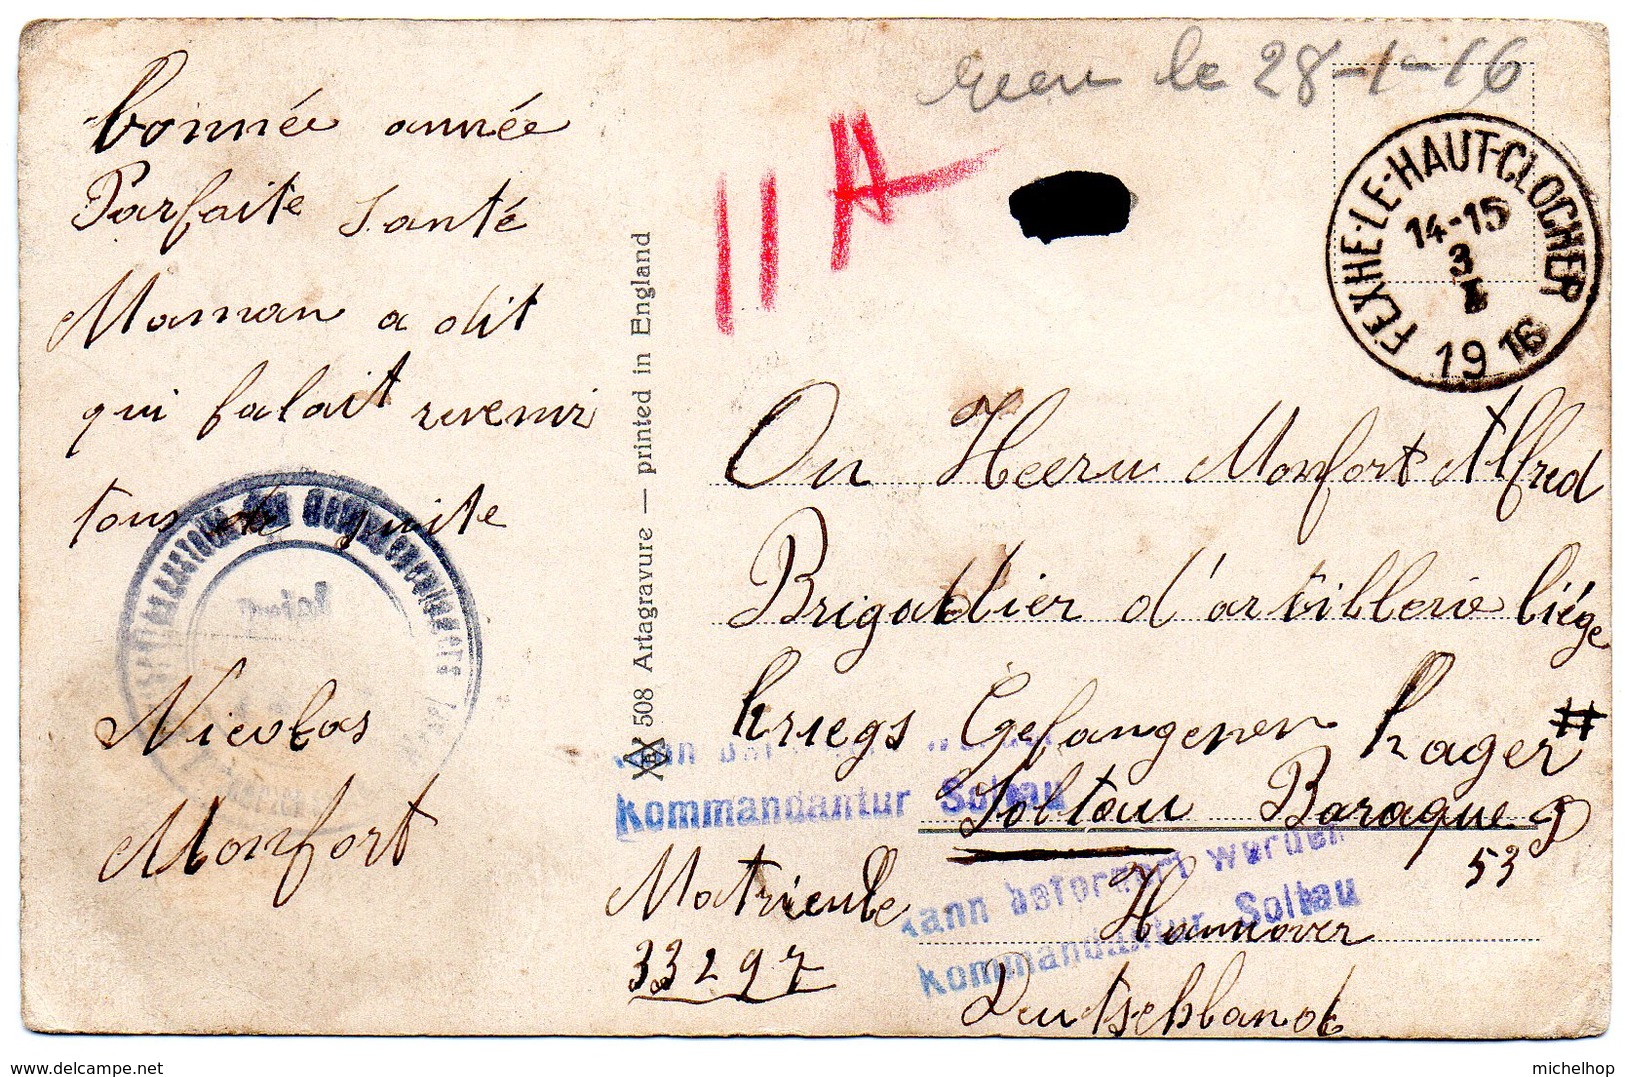 bonnée année
Parfaite Santé
Maman a dit
qui falait revenir
tous de suite
Nicolas
Monfort
508 Artagravure — printed in England
le 28-1-16
11 A
FEXHE-LE-HAUT-CLOCHER
14-15
3
1916
On Heern Monfort Alfred
Brigaddier d'artillerie liége
kriegs Gefangenen Lager #
Soltau Baraque
53
Kommandantur Soltau
Matricule
33297
kann befördert werden
Kommandantur Soltau
Hannover
Deutschland
michelhop